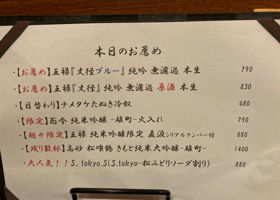 本日のお薦め
・【お薦め】王禄『丈径ブルー』純吟 無濾過 本生 790
・【お薦め】王禄『丈径』純吟 無濾過 原酒 本生 830
・【日替わり】ナメタケたぬき冷奴 480
・【限定】而今 純米吟醸 -雄町- 火入れ 790
・【超々限定】王禄 純米吟醸限定 直汲 シリアルナンバー付 880
・【残り数杯】高砂 松喰鶴 きもと純米大吟醸-雄町- 1400
・大人気!!S.tokyo.S(S.tokyo-松みどりソーダ割り) 880